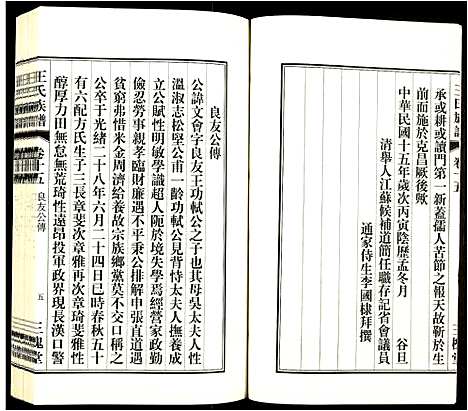 承或耕或讀門第一新蓋儒人苦節之報天故靳於生
前而施於克昌厥後歟
中華民國十五年歲次丙寅陰歷孟冬月 穀旦
清舉人江蘇候補道簡任職存記省會議員
通家侍生李國棣拜撰
王氏族譜
卷十五
良友公傳
公諱文會字良友王功軾公之子也其母吳太夫人性
溫淑志松堅公甫一齡功軾公見背恃太夫人撫養成
立公賦性明敏學識超人阨於境失學焉經營家政勤
儉忍勞事親孝臨財廉遇不平秉公排解申張直道遇
貧窮弗惜米金周濟給養故宗族鄉黨莫不交口稱之
公卒于光緒二十八年六月二十四日巳時春秋五十
有六配方氏生子三長章斐次章雅再次章琦斐雅性
醇厚力田無怠無荒琦性遠昂投軍政界現長漢口警
王氏族譜
卷十五
良友公傳
五
三槐堂